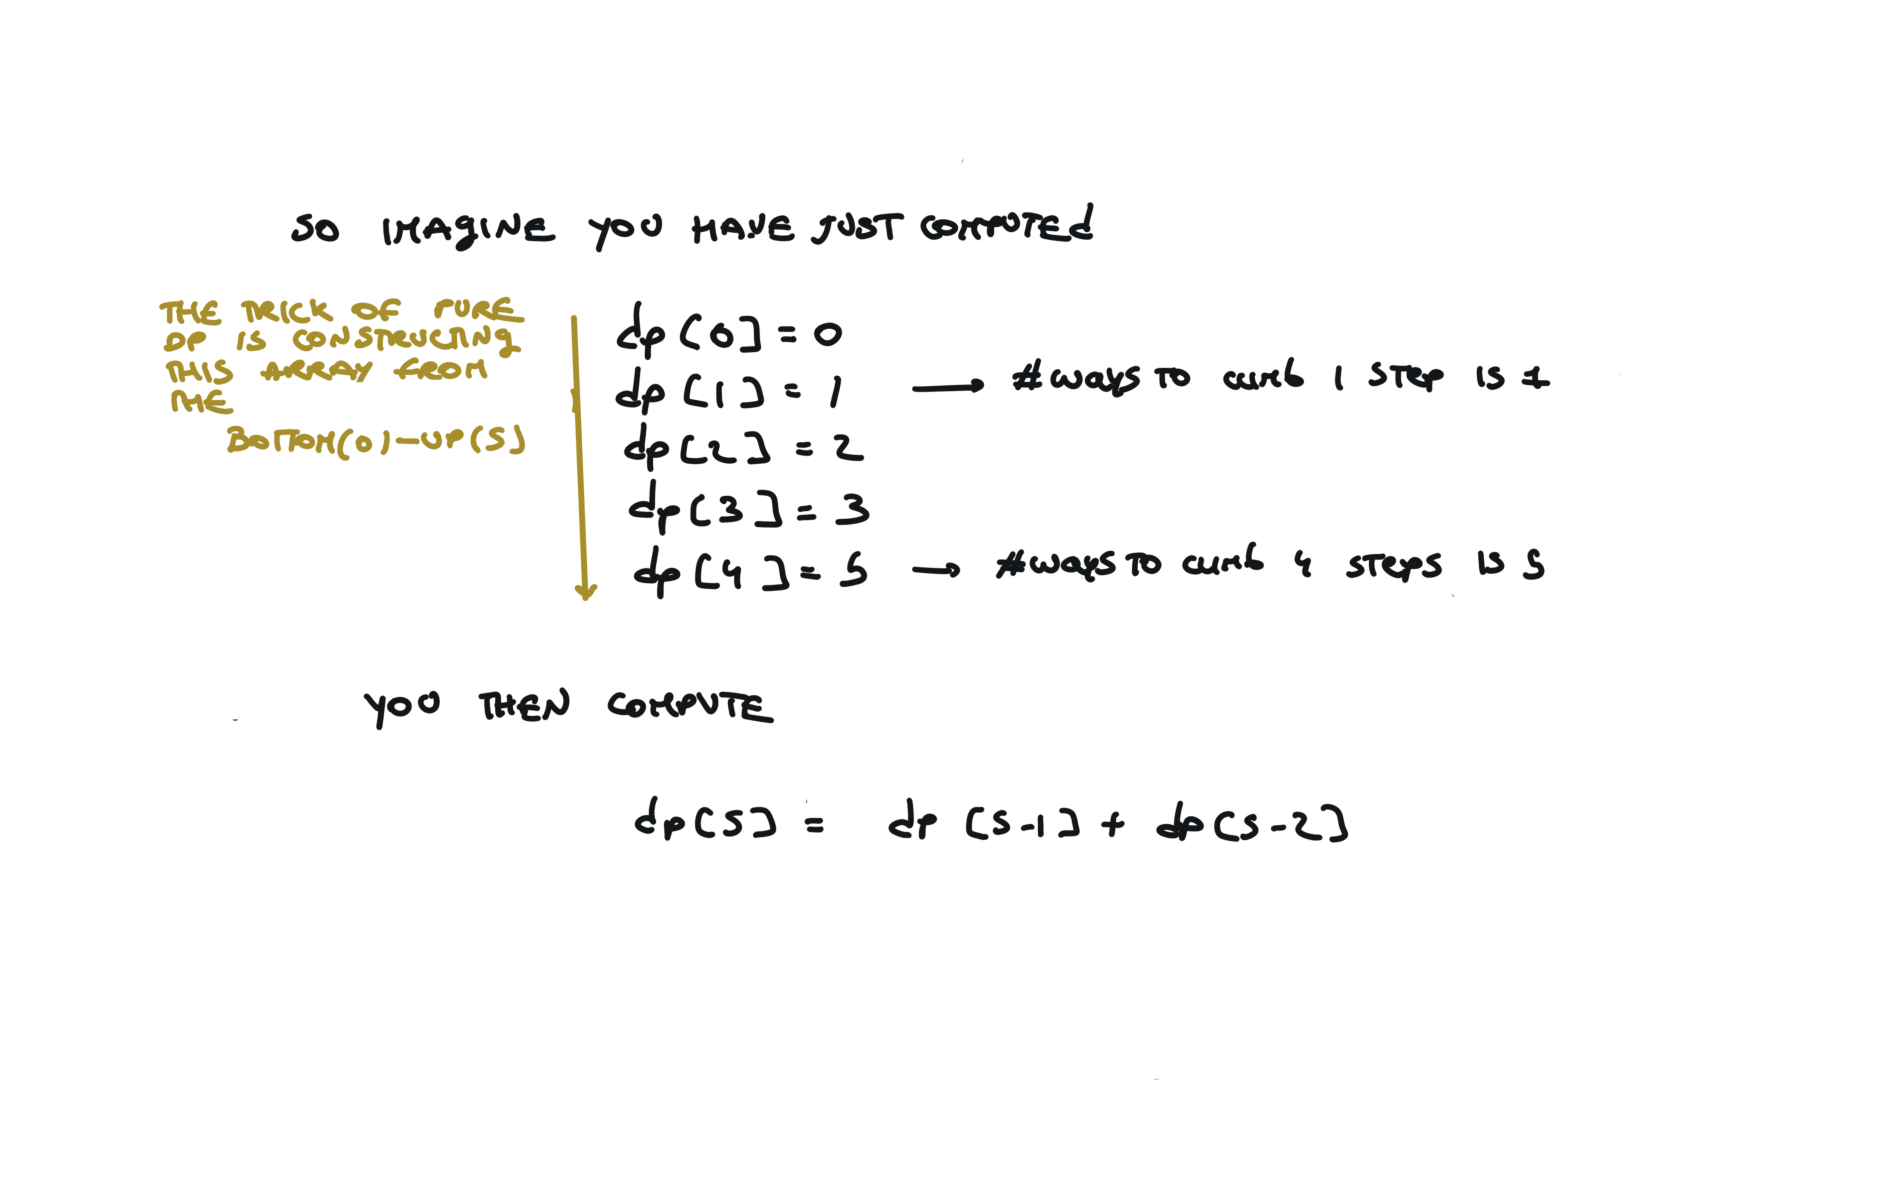 SO IMAGINE YOU HAVE JUST COMPUTEd
THE TRICK OF PURE
DP IS CONSTRUCTING
THIS ARRAY FROM
THE
BOTTOM(0)-UP(5)
dp[0] = 0
dp[1] = 1 → #ways TO climb 1 STEP IS 1
dp[2] = 2
dp[3] = 3
dp[4] = 5 → #ways TO climb 4 STEPS IS 5
YOU THEN COMPUTE
dp[5] = dp[5-1] + dp[5-2]